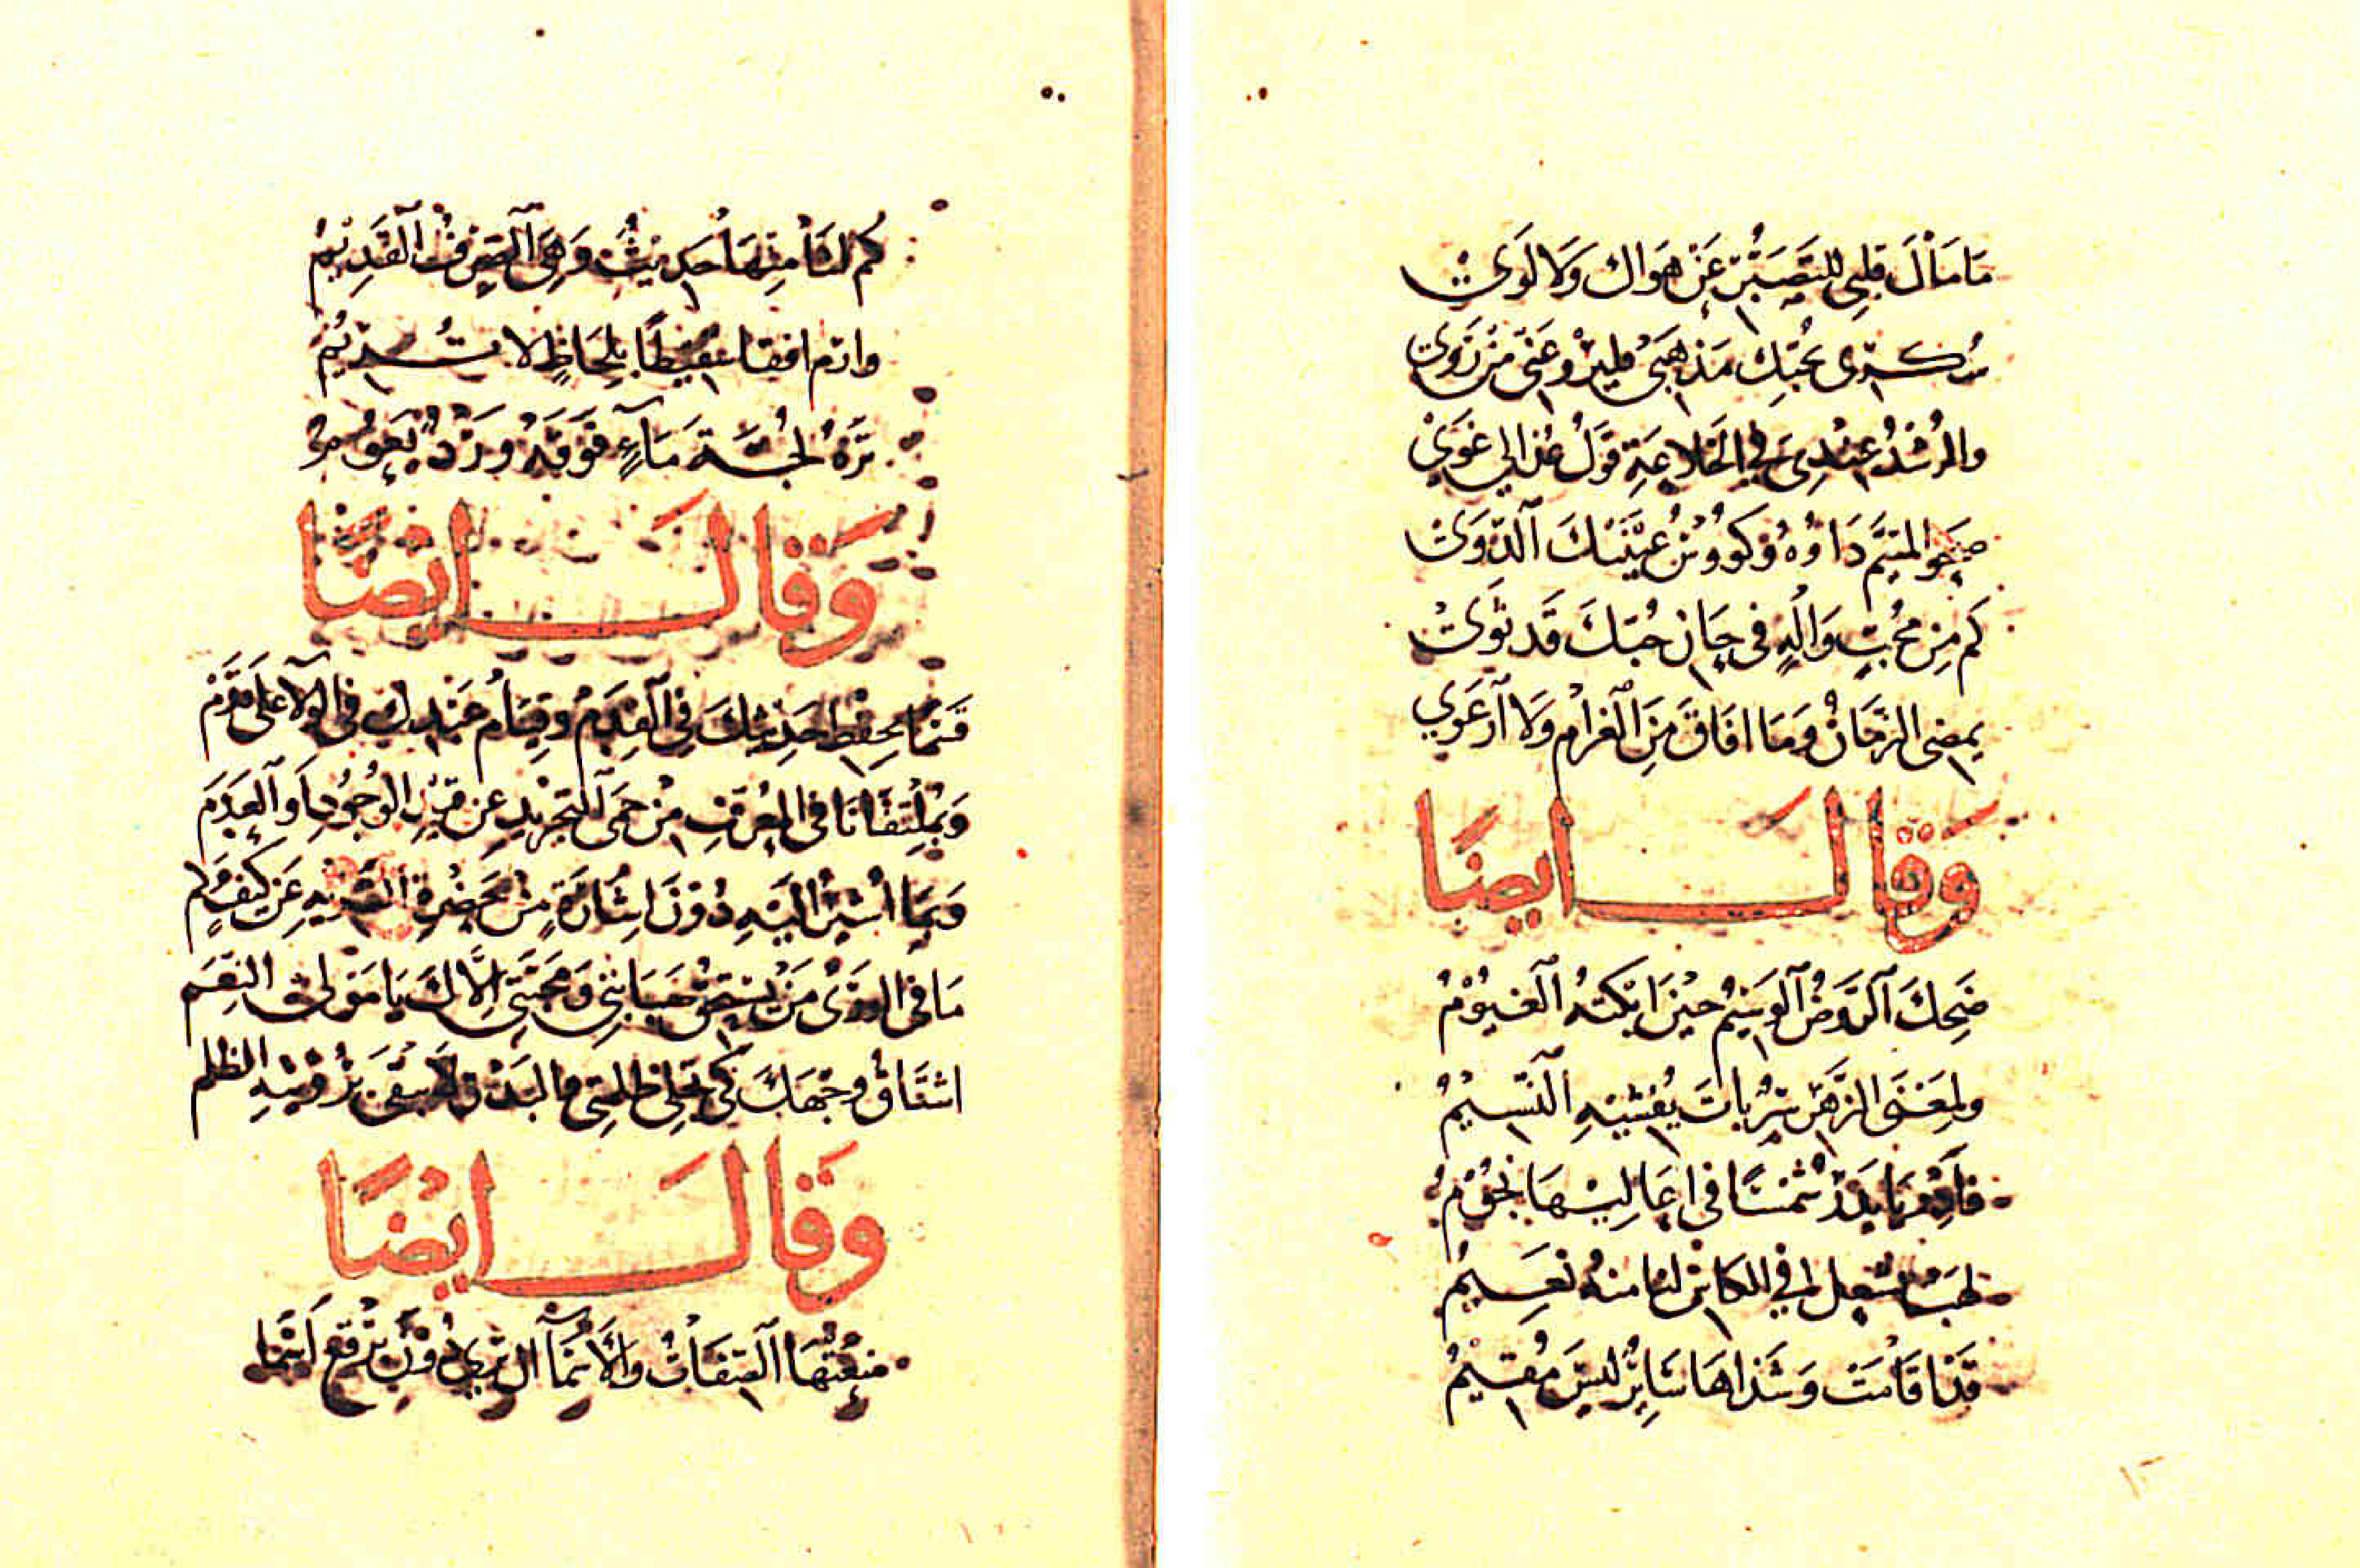 مَا مَالَ قلبي للتَصَبُّرِ عَنْ هَوَاك وَلا لَوَى
سُكرى بحُبِّك مَذهَبي فليرْو عَنّي مَنْ رَوَى
والرُشْدُ عِنْدِى في الخَلاعَةِ قَوْلُ عُذالي غَوَي
صَحْوُ المتيَّم دَاؤهُ وَكووسُ عَيْنَيْكَ الدَّوَى
كَم مِنْ محُبٍّ وَالُهٍ في حَانِ حُبّكَ قَد ثَوَى
يمضى الزَمَانُ وَمَا افَاقَ مِنَ الغَرام وَلا آرْعَوَي
وَقَالَ ايضًا
ضَحِكَ الرَّوْضُ الوَسِيْمُ حيْنَ ابْكتهُ الغيُوْمُ
ولمَعْنَى الزَّهْرِ سِرٌّ بَاتَ يُفشيْهِ النَّسيْمُ
فَأدِرْهَا يَا بَدْرُ شمْسًا في اعَاليْهَا نجُوْمُ
لهَبٌ يشعل في الكَاسِ لنا منهُ نعِيمُ
قَدْنَا قَامَتْ وَشَذاهَا سَايرٌ ليسَ مُقيْمُ
كَم لنَا مِنْهَا حَديْثٌ وَهيَ الصِرْفُ القَديْمُ
وادم افقا بلحَاظٍ لا تُديْمُ
تَرَهُ لجُّةَ مَآءٍ فَوْقَهُ وَرْدٌ يَعُومُ
وَقَالَ ايضًا
قَسَمًا بحِفظِ حَديثِكَ في القِدَمْ وَقِيَامُ عَبْدِك في الولآ عَلَى قَدَمْ
وَبمُلتَقَانَا في المعَرَّفِ مِنْ حمَى التجرْيْدِ عَن قَيْدِ الوُجُوْدِ وَالعَدَمَ
وَبمَا اُشيْرُ اليَهِ دُوْنَ اشَارَةٍ مِنْ حَضْرَةِ التنزيهِ عَن كَيْفٍ وَلم
مَا في الورَى مَنْ يَسْتحِقُّ صَبَابَتي وَمحَبَّتي الَّاكَ يَا مَوْلى النِعَم
اشتَاقُ وجْهَكَ كَي تجلي ظلمتي فالبَدْرُ لا تبقى برُؤيتهِ الظلم
وَقَالَ ايْضًا
مَنعَتْهَا الصِّفَاتُ وَالأَسْمَآ ان تُرى دُوْنَ بُرْقعٍ اَسْمَا